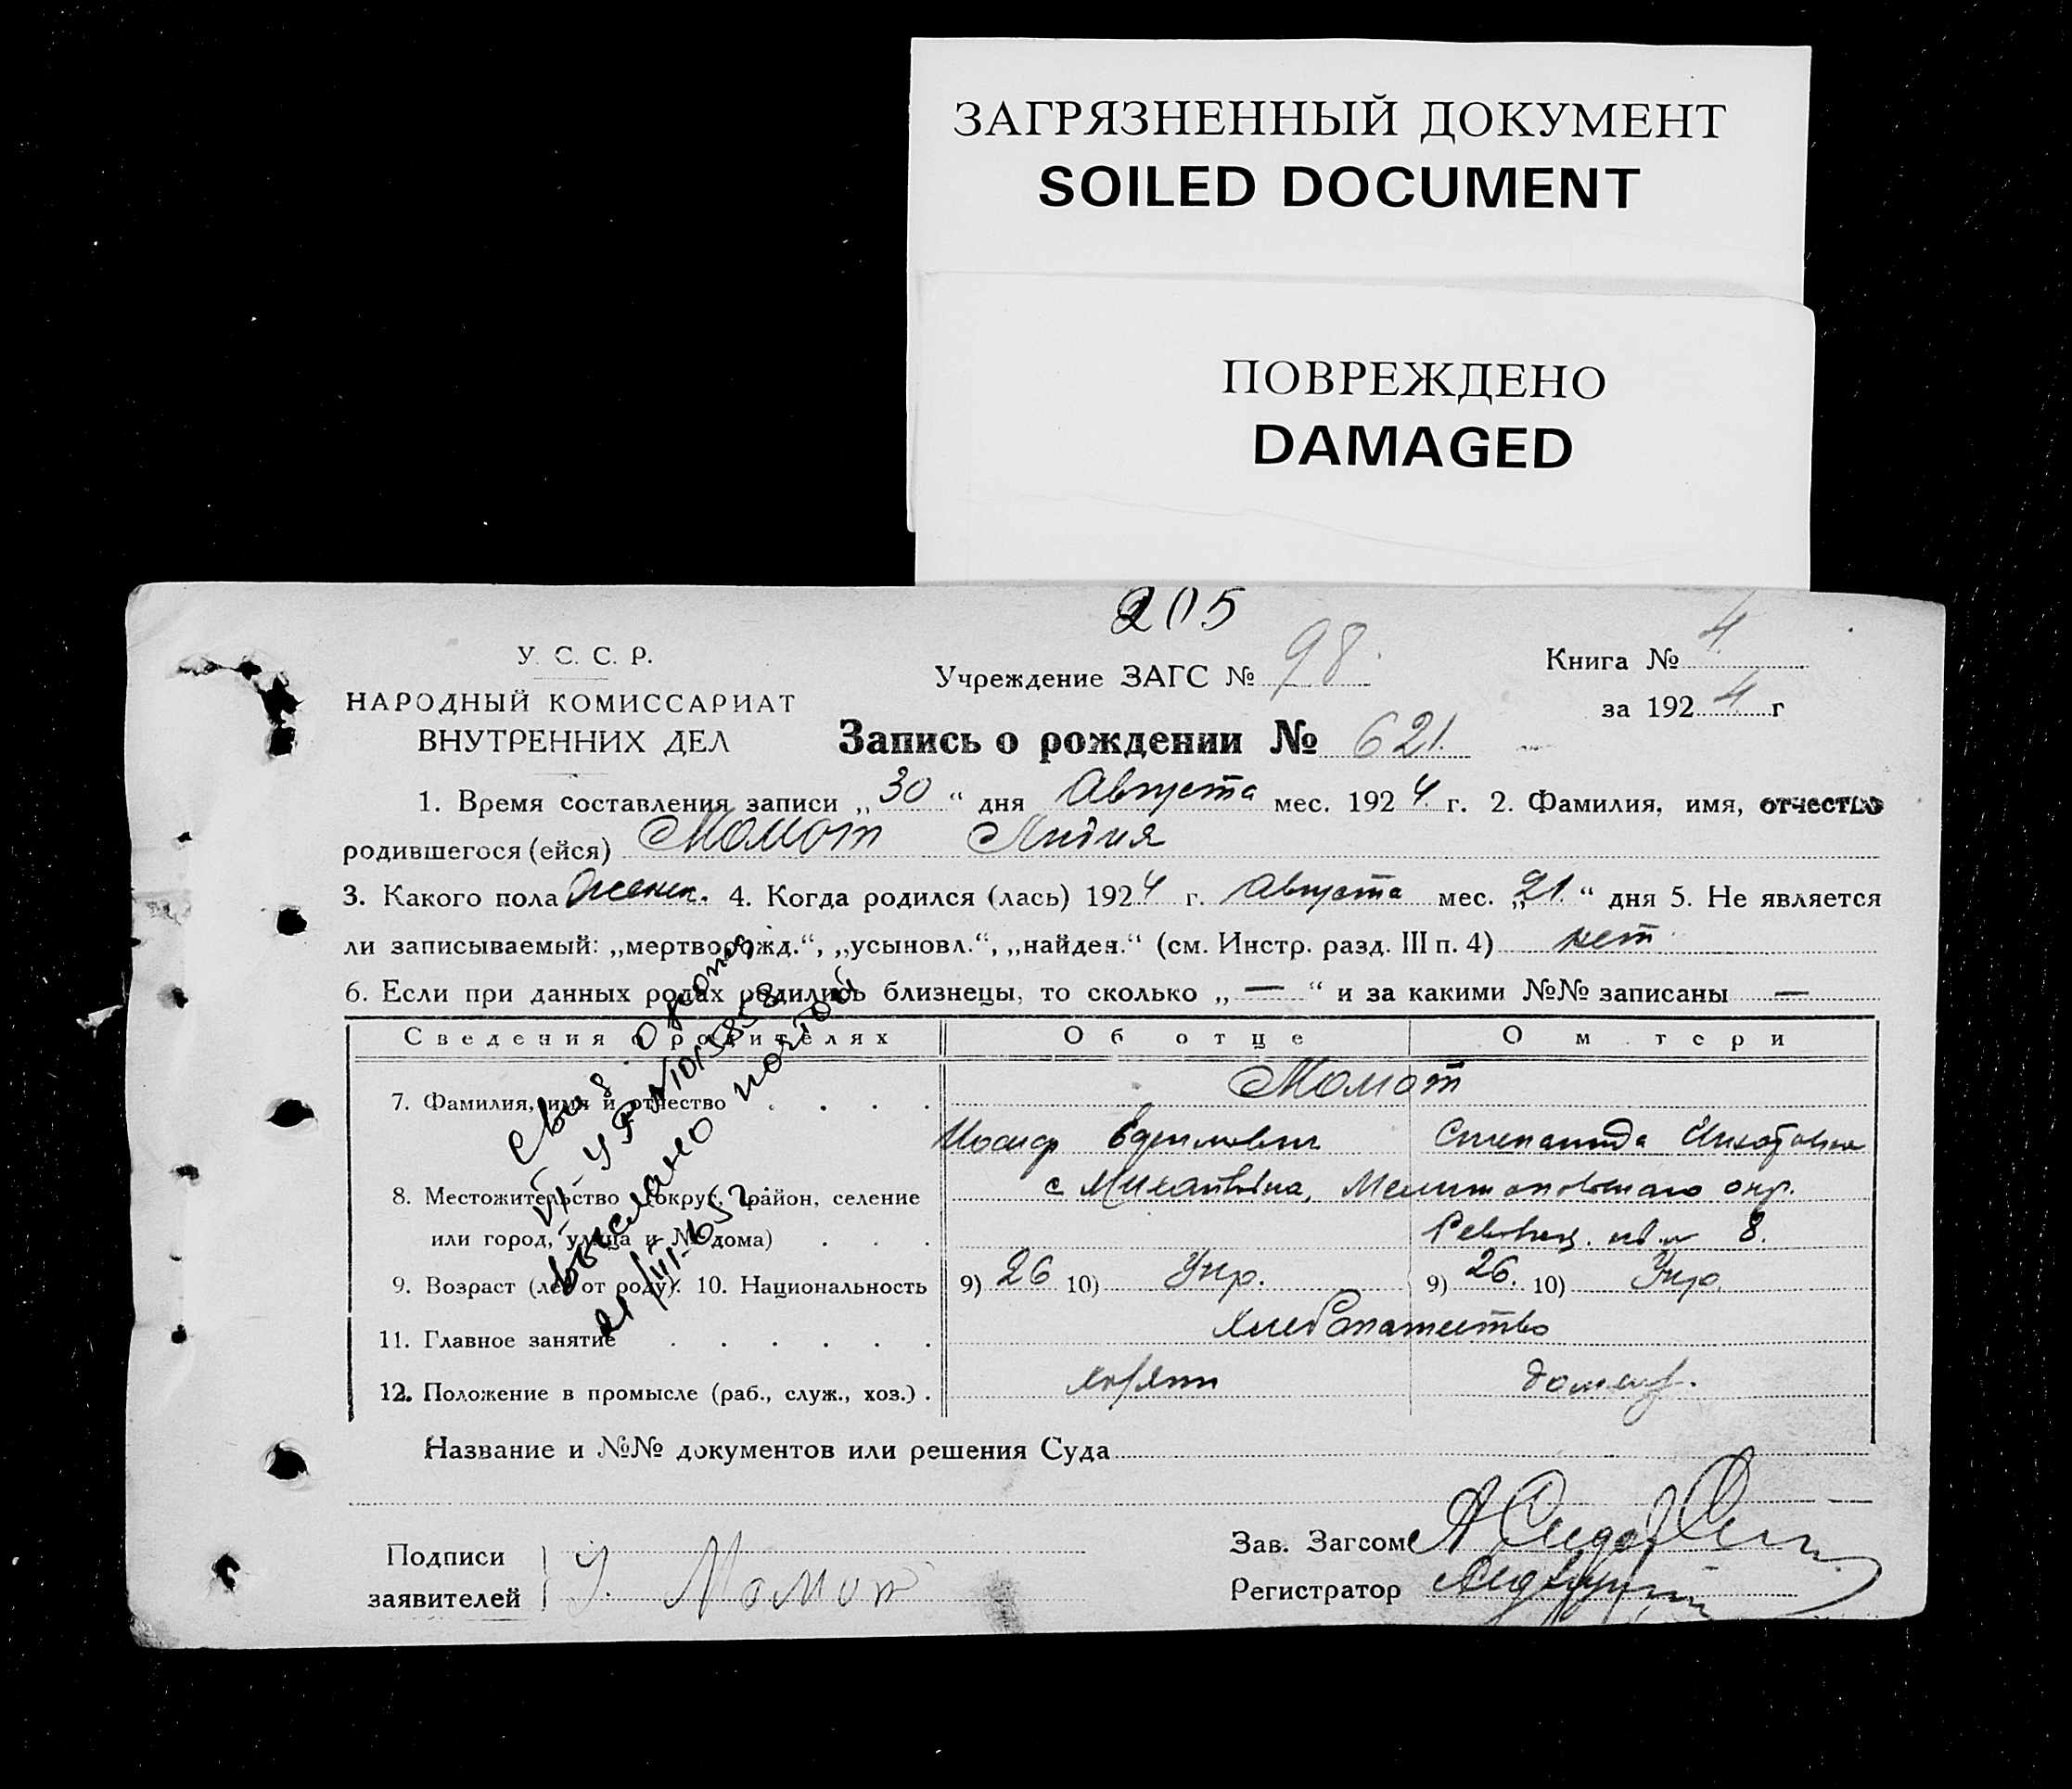 ЗАГРЯЗНЕННЫЙ ДОКУМЕНТ
SOILED DOCUMENT
ПОВРЕЖДЕНО
DAMAGED
205
У. С. С. Р.
НАРОДНЫЙ КОМИССАРИАТ
ВНУТРЕННИХ ДЕЛ
Учреждение ЗАГС № 98.
Книга № 4.
за 1924 г
Запись о рождении № 621.
1. Время составления записи „30“ дня Августа мес. 1924 г. 2. Фамилия, имя, отчество
родившегося (ейся) Момот Лидия
3. Какого пола женск. 4. Когда родился (лась) 1924 г. Августа мес. „21.“ дня 5. Не является
ли записываемый: „мертворожд.“, „усыновл.“, „найден.“ (см. Инстр. разд. III п. 4) нет
6. Если при данных родах родились близнецы, то сколько „—“ и за какими №№ записаны —
Сведения о родителях Об отце О матери
7. Фамилия, имя и отчество . . . . Момот
Иосиф Ефимович Степанида
8. Местожительство (округ, район, селение с Михайловка, Мелитопольского окр.
или город, улица и № дома) . . . 8.
9. Возраст (лет от роду). 10. Национальность 9) 26 10) Укр. 9) 26. 10) Укр.
11. Главное занятие . . . . . . хлебопашество
12. Положение в промысле (раб., служ., хоз.) . хозяин домаш.
Название и №№ документов или решения Суда
Подписи
заявителей
Момот
Зав. Загсом
Регистратор
Св. о рожд
УР № 015858
выслано почтой
21/III-65 г.